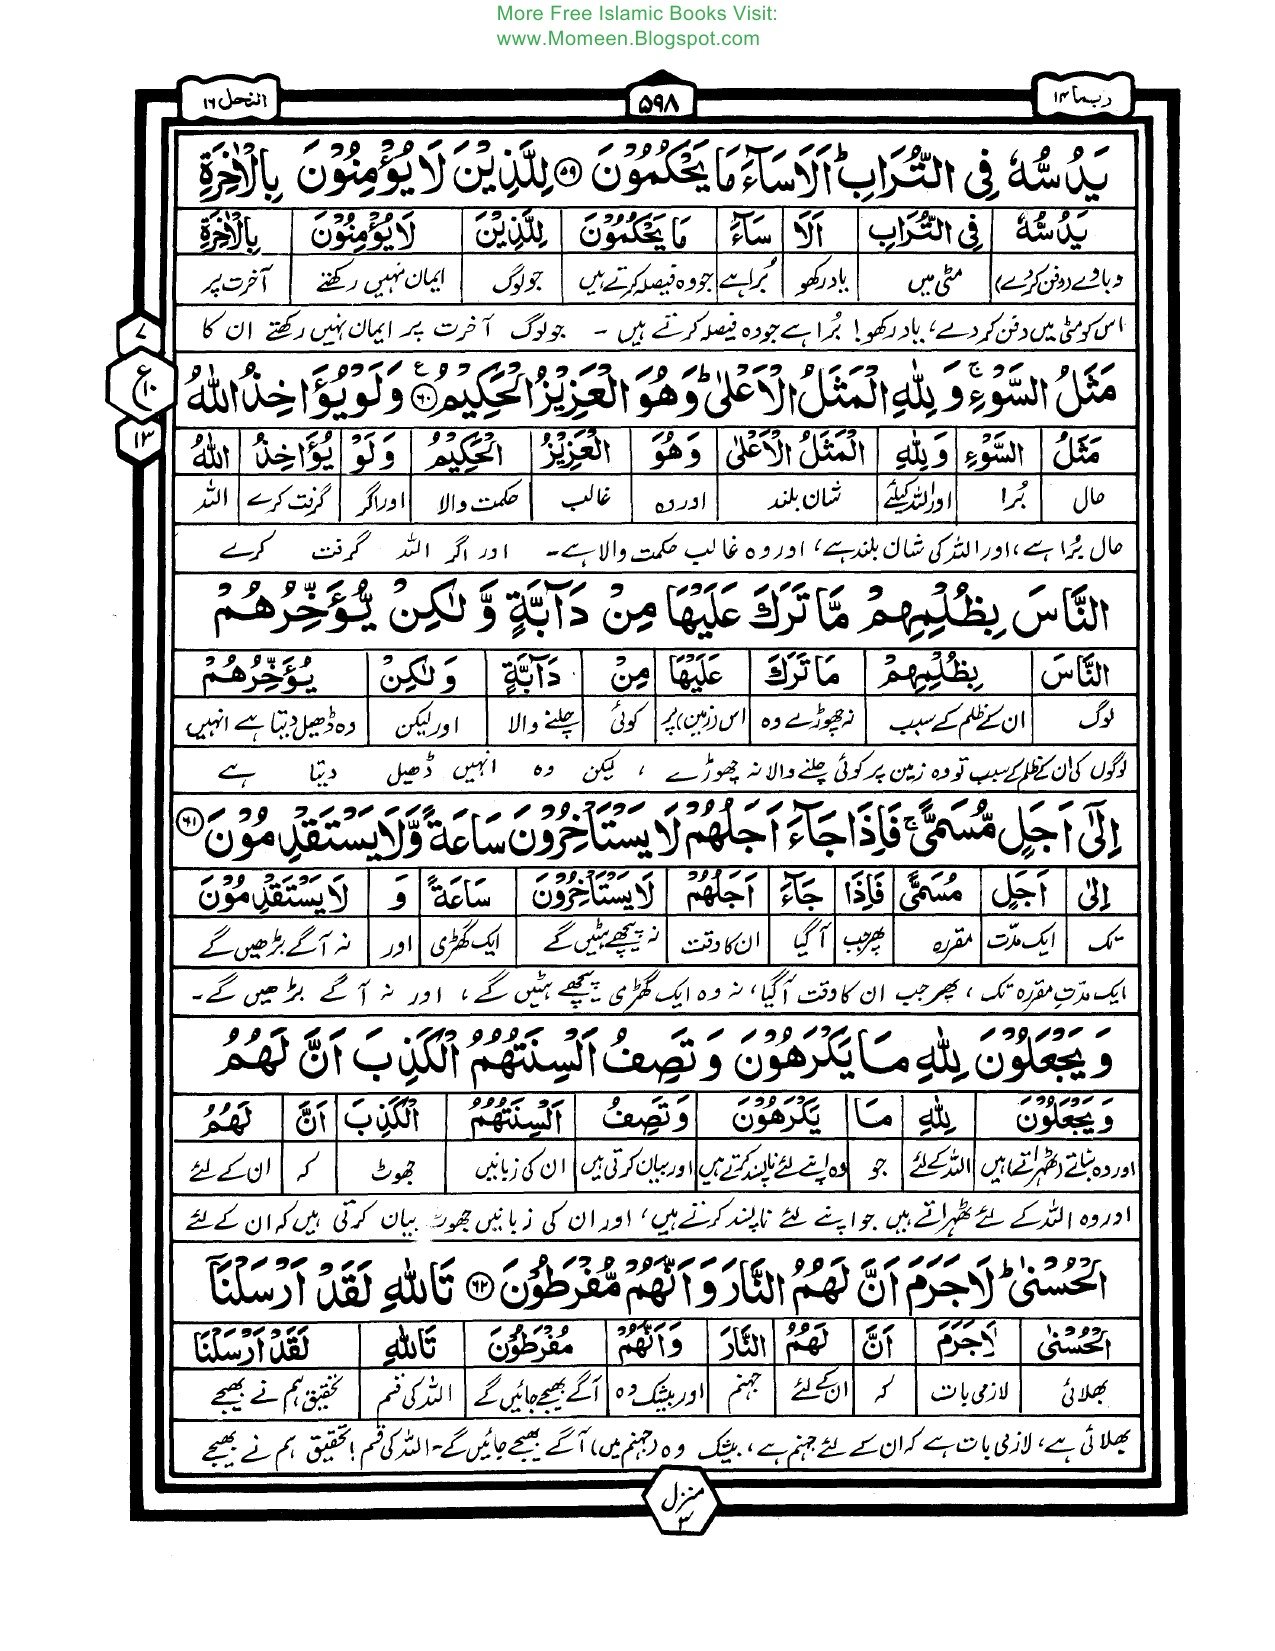 More Free Islamic Books Visit:
www.Momeen.Blogspot.com
ربما ۱۴
۵۹۸
النحل ۱۶
يَدُسُّهٗ فِي التُّرَابِ ؕ اَلَا سَآءَ مَا يَحْكُمُوْنَ ۵۹ لِلَّذِيْنَ لَا يُؤْمِنُوْنَ بِالْاٰخِرَةِ
يَدُسُّهٗ فِي التُّرَابِ اَلَا سَآءَ مَا يَحْكُمُوْنَ لِلَّذِيْنَ لَا يُؤْمِنُوْنَ بِالْاٰخِرَةِ
دبا دے (دفن کر دے) مٹی میں یاد رکھو بُرا ہے جو وہ فیصلہ کرتے ہیں جو لوگ ایمان نہیں رکھتے آخرت پر
اس کو مٹی میں دفن کر دے، یاد رکھو! بُرا ہے جو وہ فیصلہ کرتے ہیں ۔ جو لوگ آخرت پر ایمان نہیں رکھتے ان کا
۷
ع ۱۰
۱۳
مَثَلُ السَّوْءِ ۚ وَ لِلّٰهِ الْمَثَلُ الْاَعْلٰى ؕ وَهُوَ الْعَزِيْزُ الْحَكِيْمُ ۶۰ ع وَلَوْ يُؤَاخِذُ اللّٰهُ
مَثَلُ السَّوْءِ وَ لِلّٰهِ الْمَثَلُ الْاَعْلٰى وَهُوَ الْعَزِيْزُ الْحَكِيْمُ وَلَوْ يُؤَاخِذُ اللّٰهُ
حال بُرا اور اللہ کیلئے شان بلند اور وہ غالب حکمت والا اور اگر گرفت کرے اللہ
حال بُرا ہے، اور اللہ کی شان بلند ہے، اور وہ غالب حکمت والا ہے۔ اور اگر اللہ گرفت کرے
النَّاسَ بِظُلْمِهِمْ مَّا تَرَكَ عَلَيْهَا مِنْ دَآبَّةٍ وَّ لٰكِنْ يُّؤَخِّرُهُمْ
النَّاسَ بِظُلْمِهِمْ مَا تَرَكَ عَلَيْهَا مِنْ دَآبَّةٍ وَ لٰكِنْ يُؤَخِّرُهُمْ
لوگ ان کے ظلم کے سبب نہ چھوڑے وہ اس (زمین) پر کوئی چلنے والا اور لیکن وہ ڈھیل دیتا ہے انہیں
لوگوں کی ان کے ظلم کے سبب تو وہ زمین پر کوئی چلنے والا نہ چھوڑے ، لیکن وہ انہیں ڈھیل دیتا ہے
اِلٰٓى اَجَلٍ مُّسَمًّى ۚ فَاِذَا جَآءَ اَجَلُهُمْ لَا يَسْتَاْخِرُوْنَ سَاعَةً وَّلَا يَسْتَقْدِمُوْنَ ۶۱
اِلٰى اَجَلٍ مُسَمًّى فَاِذَا جَآءَ اَجَلُهُمْ لَا يَسْتَاْخِرُوْنَ سَاعَةً وَ لَا يَسْتَقْدِمُوْنَ
تک ایک مدّت مقررہ پھر جب آ گیا ان کا وقت نہ پیچھے ہٹیں گے ایک گھڑی اور نہ آگے بڑھیں گے
ایک مدّتِ مقررہ تک ، پھر جب ان کا وقت آ گیا، نہ وہ ایک گھڑی پیچھے ہٹیں گے، اور نہ آگے بڑھیں گے۔
وَ يَجْعَلُوْنَ لِلّٰهِ مَا يَكْرَهُوْنَ وَ تَصِفُ اَلْسِنَتُهُمُ الْكَذِبَ اَنَّ لَهُمُ
وَ يَجْعَلُوْنَ لِلّٰهِ مَا يَكْرَهُوْنَ وَ تَصِفُ اَلْسِنَتُهُمُ الْكَذِبَ اَنَّ لَهُمُ
اور وہ بناتے (ٹھہراتے) ہیں اللہ کے لئے جو وہ اپنے لئے ناپسند کرتے ہیں اور بیان کرتی ہیں ان کی زبانیں جھوٹ کہ ان کے لئے
اور وہ اللہ کے لئے ٹھہراتے ہیں جو اپنے لئے ناپسند کرتے ہیں، اور ان کی زبانیں جھوٹ بیان کرتی ہیں کہ ان کے لئے
الْحُسْنٰى ؕ لَا جَرَمَ اَنَّ لَهُمُ النَّارَ وَ اَنَّهُمْ مُّفْرَطُوْنَ ۶۲ تَاللّٰهِ لَقَدْ اَرْسَلْنَآ
الْحُسْنٰى لَا جَرَمَ اَنَّ لَهُمُ النَّارَ وَ اَنَّهُمْ مُفْرَطُوْنَ تَاللّٰهِ لَقَدْ اَرْسَلْنَا
بھلائی لازمی بات کہ ان کے لئے جہنم اور بیشک وہ آگے بھیجے جائیں گے اللہ کی قسم تحقیق ہم نے بھیجے
بھلائی ہے، لازمی بات ہے کہ ان کے لئے جہنم ہے، بیشک وہ (جہنم میں) آگے بھیجے جائیں گے۔ اللہ کی قسم! تحقیق ہم نے بھیجے
منزل ۳